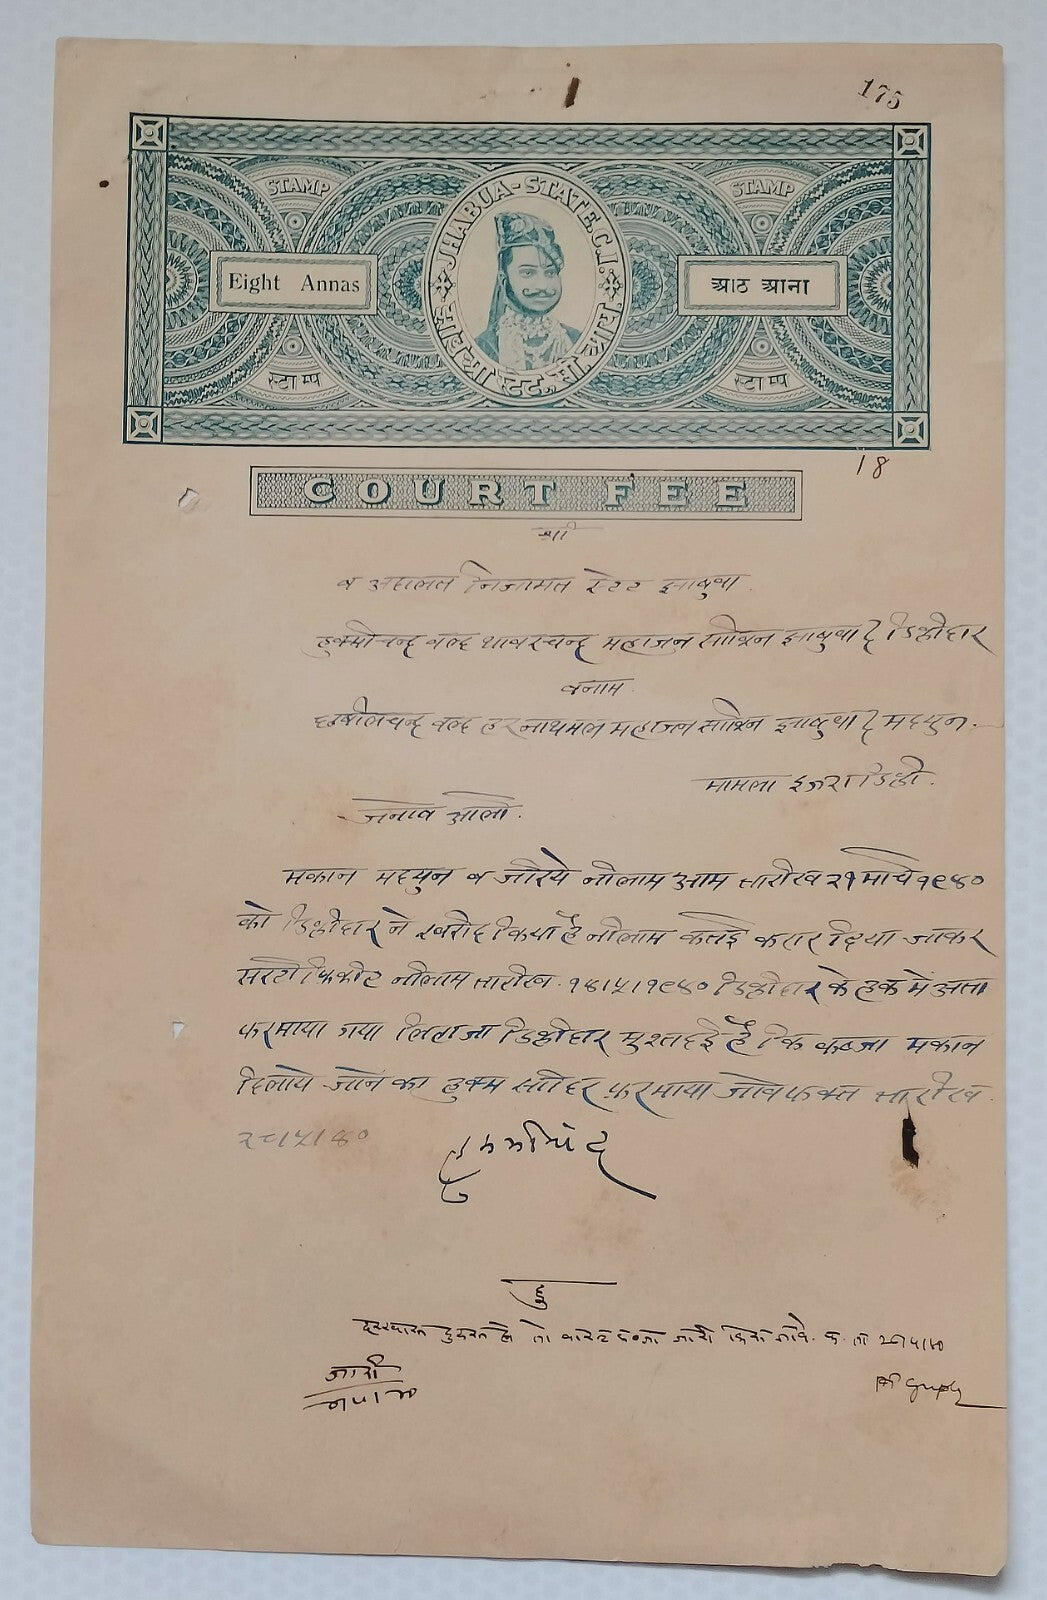 175
STAMP STAMP
JHABUA-STATE, C.I.
Eight Annas
आठ आना
झाबुआ स्टेट, सी.
स्टाम्प स्टाम्प
18
COURT FEE
श्री
व अदालत निजामत स्टेट झाबुवा
हुकमीचन्द वल्द थावरचन्द महाजन साकिन झाबुवा डिक्रीदार
बनाम
छबीलचन्द वल्द हरनाथमल महाजन साकिन झाबुवा मदयुन
मामला इजरा डिक्री.
जनाब आली.
मकान मदयुन व जरिये नीलाम आम तारीख २१ मार्च १९४०
को डिक्रीदार ने खरीद किया है नीलाम कतई करार दिया जाकर
सरटीफिकीट नीलाम तारीख १४।५।१९४० डिक्रीदार के हक मे अता
फरमाया गया लिहाजा डिक्रीदार मुस्तदई है कि कब्जा मकान
दिलाये जाने का हुक्म सादिर फरमाया जावे फक्त तारीख
२८।५।४०
हुकमीचंद
हु
दरखास्त दुरुस्त हो तो वारंट कब्जा जारी किया जावे.
जारी